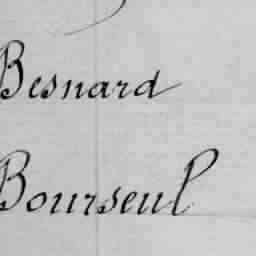 Besnard
Bourseul